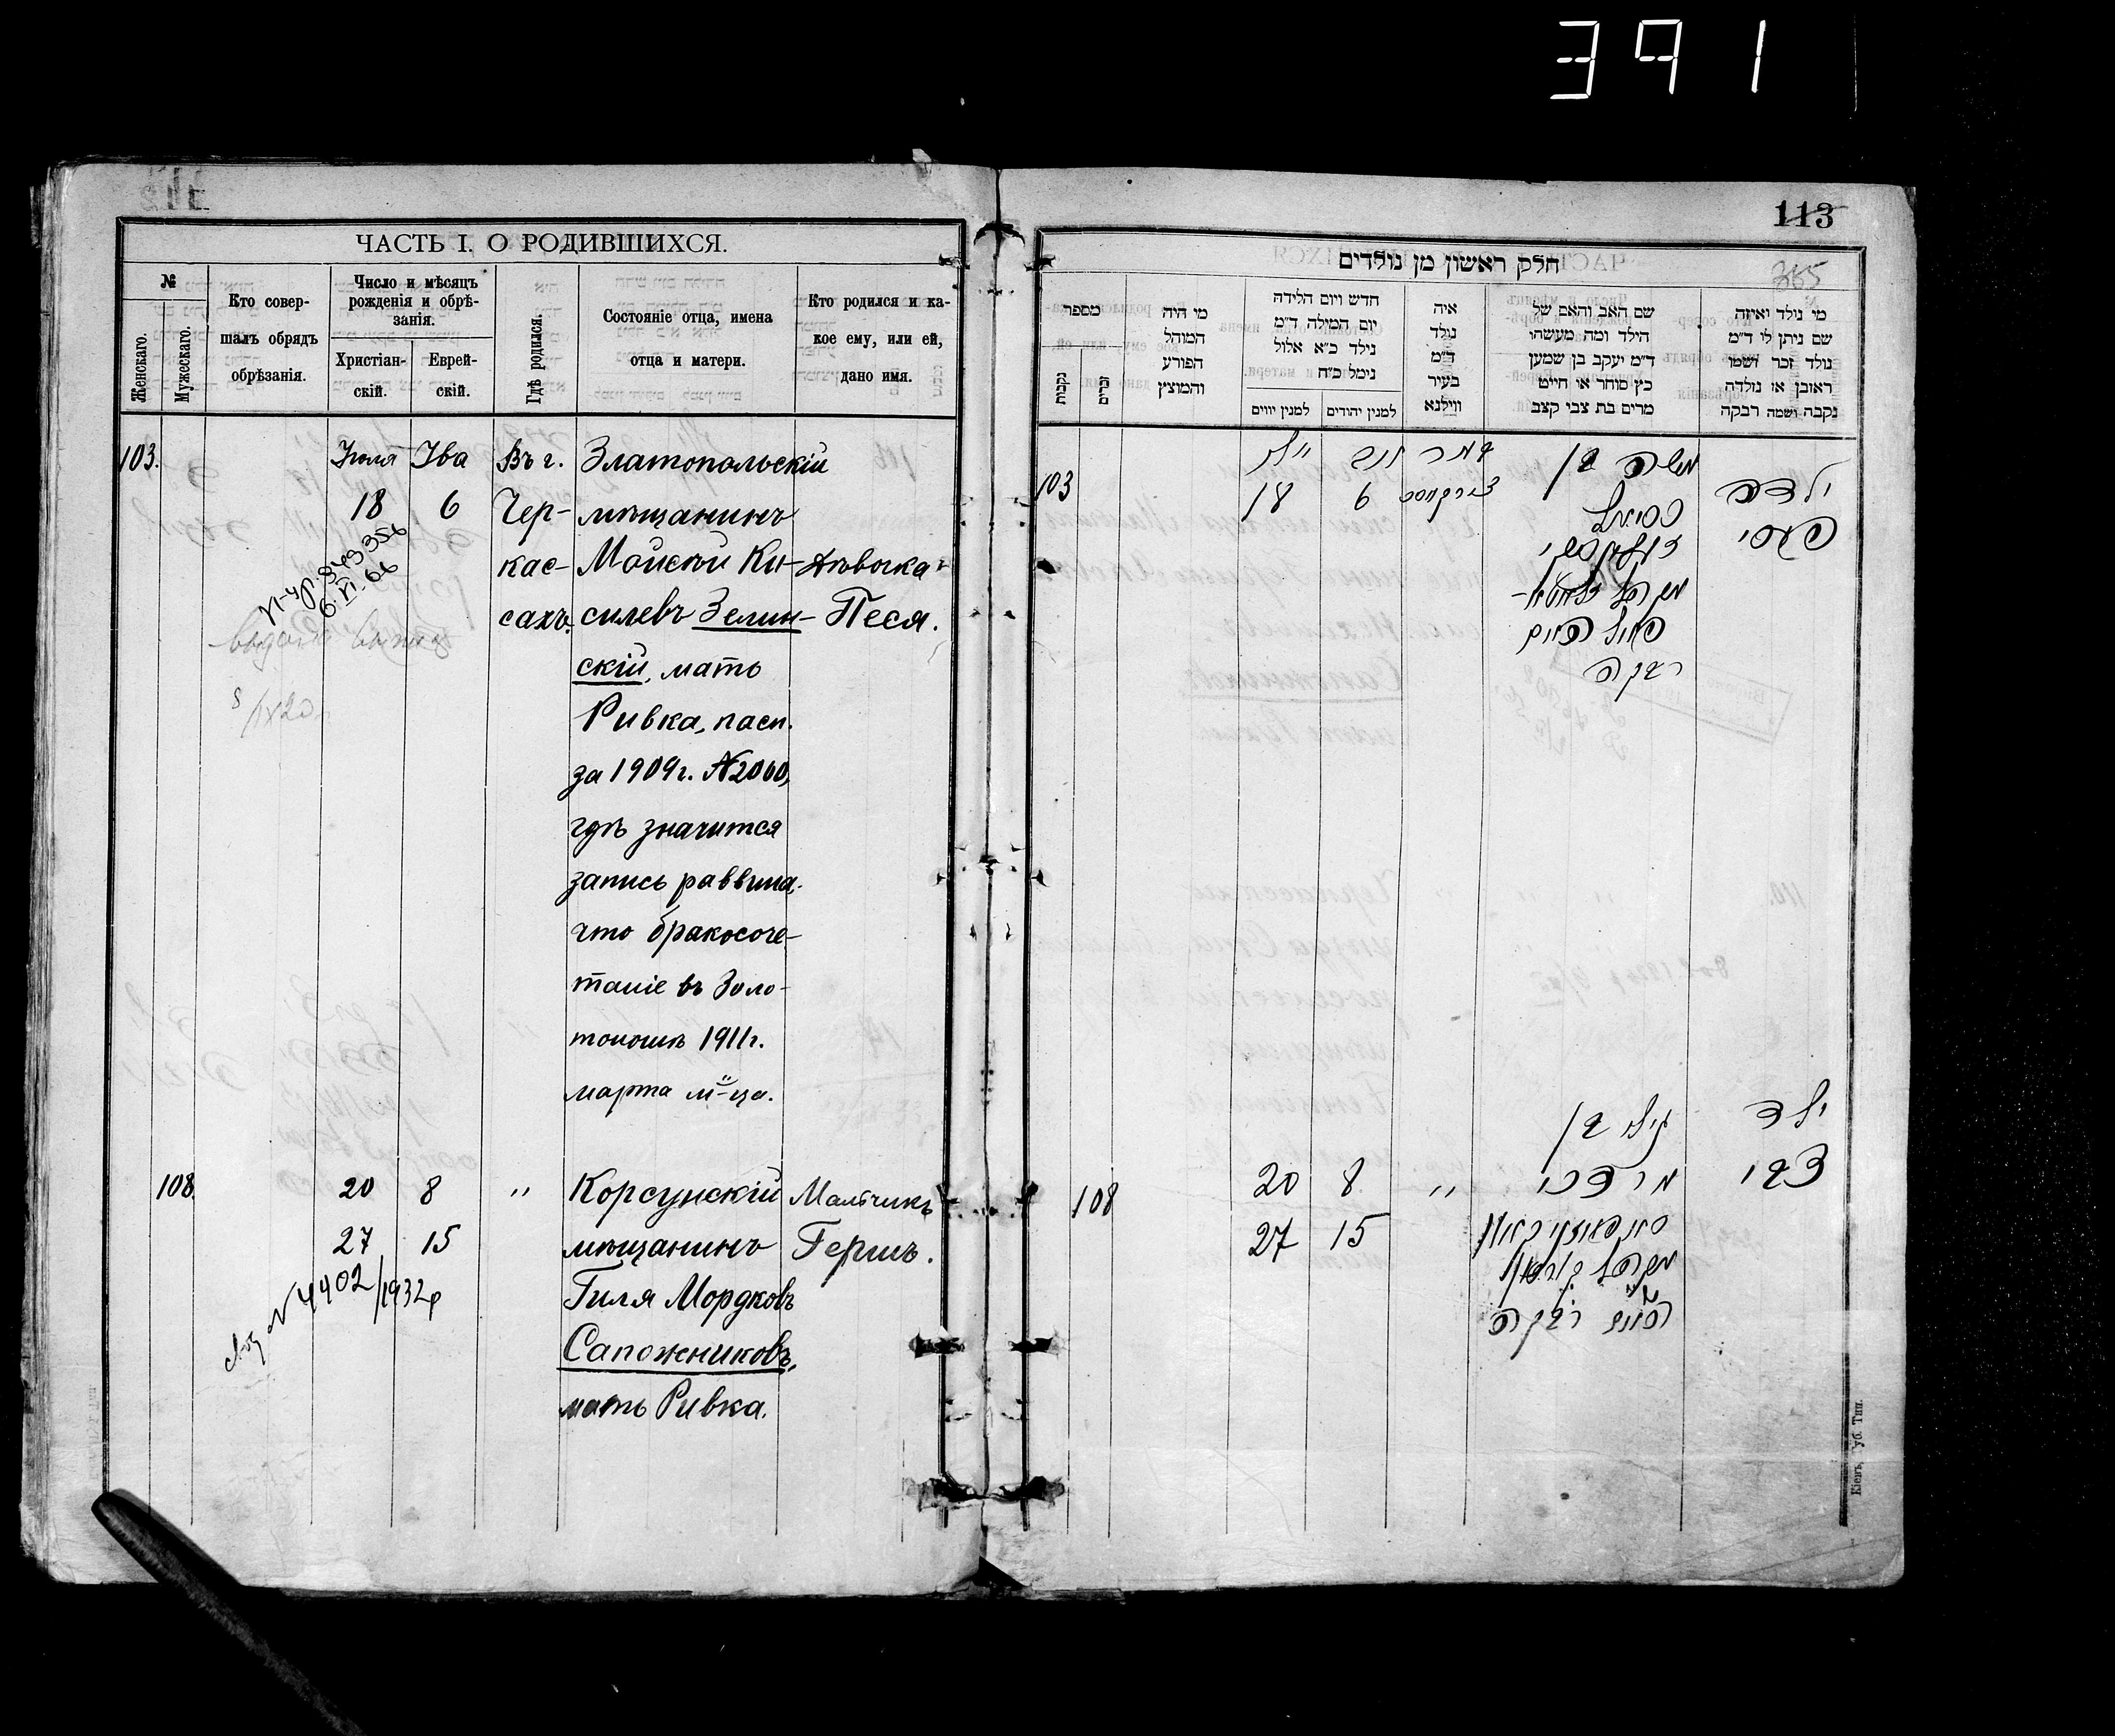 391
113
385
ЧАСТЬ I. О РОДИВШИХСЯ.
№
Женскаго.
Мужескаго.
Кто совер-
шалъ обрядъ
обрѣзанія.
Число и мѣсяцъ
рожденія и обрѣ-
занія.
Христіан-
скій.
Еврей-
скій.
Гдѣ родился.
Состояніе отца, имена
отца и матери.
Кто родился и ка-
кое ему, или ей,
дано имя.
103.
Іюля
18
Ава
6
Въ г.
Чер-
кас-
сахъ.
Златопольскій
мѣщанинъ
Моисѣй Ки-
силевъ Зелин-
скій, мать
Ривка, пасп.
за 1909г. №2060,
гдѣ значится
запись раввина,
что бракосоче-
таніе въ Золо-
тоношѣ 1911г.
марта м-ца.
Дѣвочка
Песя.
6.VI.66
8/IX20
108
20 8 "
27 15
Корсунскій
мѣщанинъ
Гиля Мордковъ
Сапожниковъ,
мать Ривка.
Мальчикъ
Гершъ.
№4402/1932р
חלק ראשון מן נולדים
מספר
נקבות
זכרים
מי היה
המוהל
הפורע
והמוצץ
חדש ויום הלידה
יום המילה ד"מ
נילד כ"א אלול
נימל כ"ח
למנין יווים
למנין יהודים
איה
נולד
ד"מ
בעיר
ווילנא
שם האב והאם של
הילד ומה מעשהו
ד"מ יעקב בן שמען
כץ סוחר או חייט
מרים בת צבי קצב
מי נולד ואיזה
שם ניתן לו ד"מ
נולד זכר ושמו
ראובן או נולדה
נקבה ושמה רבקה
103
18
6
משה בן
רבקה
ילדה
פעסי
108
20 8 "
27 15
הילי בן
מרדכי
רבקה
ילד
צבי
Кіевъ, Губ. Тип.